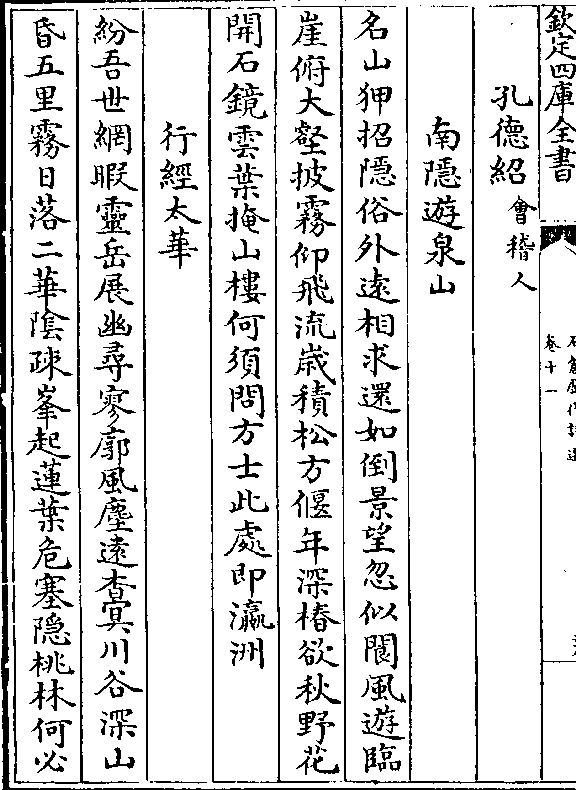 欽定四庫全書
卷十一
孔德紹會稽人
南隱遊泉山
名山狎招隱俗外逺相求還如倒景望忽似閬風遊臨
崖俯大壑披霧仰飛流歲積松方偃年深椿欲秋野花
開石鏡雲葉掩山樓何須問方士此處即瀛洲
行經太華
紛吾世網暇靈岳展幽尋寥廓風塵遠杳冥川谷深山
昏五里霧日落二華陰疎峯起蓮葉危塞隱桃林何必